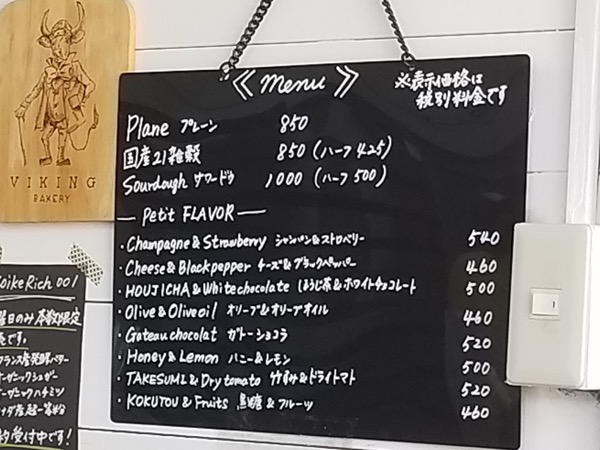 VIKING
BAKERY
《 Menu 》
※表示価格は
税別料金です
Plane プレーン 850
国産21雑穀 850 (ハーフ 425)
Sourdough サワードウ 1000 (ハーフ 500)
Petit FLAVOR
・Champagne & Strawberry シャンパン&ストロベリー 540
・Cheese & Blackpepper チーズ&ブラックペッパー 460
・HOUJICHA & White chocolate ほうじ茶&ホワイトチョコレート 500
・Olive & Olive oil オリーブ&オリーブオイル 460
・Gateau chocolat ガトーショコラ 520
・Honey & Lemon ハニー&レモン 500
・TAKESUMI & Dry tomato 竹すみ&ドライトマト 520
・KOKUTOU & Fruits 黒糖&フルーツ 460
oikeRich 001
曜日のみ本数限定
です。
フランス産発酵バター
ーガニックシュガー
ーガニックハチミツ
ナダ産超一等粉
約受付中です!